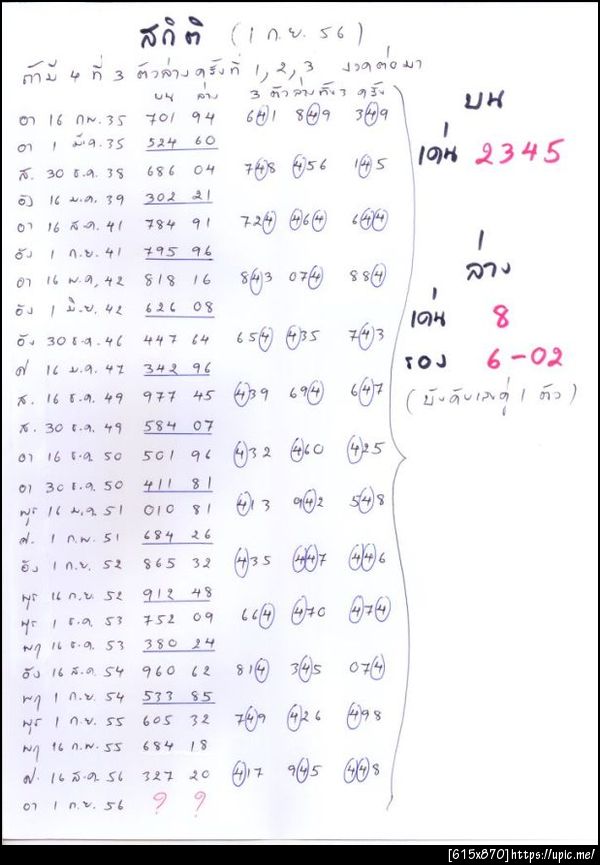 สถิติ (1 ก.ย. 56)
ถ้ามี 4 ที่ 3 ตัวล่างครั้งที่ 1, 2, 3 งวดต่อมา
บน ล่าง 3 ตัวล่างทั้ง 3 ครั้ง
อา 16 ก.พ. 35 701 94 641 849 349
อา 1 มี.ค. 35 524 60
ส. 30 ธ.ค. 38 686 04 748 456 145
อัง 16 ม.ค. 39 302 21
อา 16 ส.ค. 41 784 91 724 464 644
อัง 1 ก.ย. 41 795 96
อา 16 พ.ค. 42 818 16 843 074 884
อัง 1 มิ.ย. 42 626 08
อัง 30 ธ.ค. 46 447 64 654 435 743
ศ 16 ม.ค. 47 342 96
ส. 16 ธ.ค. 49 977 45 439 694 647
ส. 30 ธ.ค. 49 584 07
อา 16 ธ.ค. 50 501 96 432 460 425
อา 30 ธ.ค. 50 411 81
พุธ 16 ม.ค. 51 010 81 413 942 548
ศ. 1 ก.พ. 51 684 26
อัง 1 ก.ย. 52 865 32 435 447 446
พุธ 16 ก.ย. 52 912 48
พุธ 1 ธ.ค. 53 752 09 664 470 474
พฤ 16 ธ.ค. 53 380 24
อัง 16 ส.ค. 54 960 62 814 345 074
พฤ 1 ก.ย. 54 533 85
พุธ 1 ก.ย. 55 605 32 749 426 498
พฤ 16 ก.พ. 55 684 18
ศ. 16 ส.ค. 56 327 20 417 945 448
อา 1 ก.ย. 56 ? ?
บน
เด่น 2345
ล่าง
เด่น 8
รอง 6-02
(บังคับเลขคู่ 1 ตัว)
[615x870]https://upic.me/